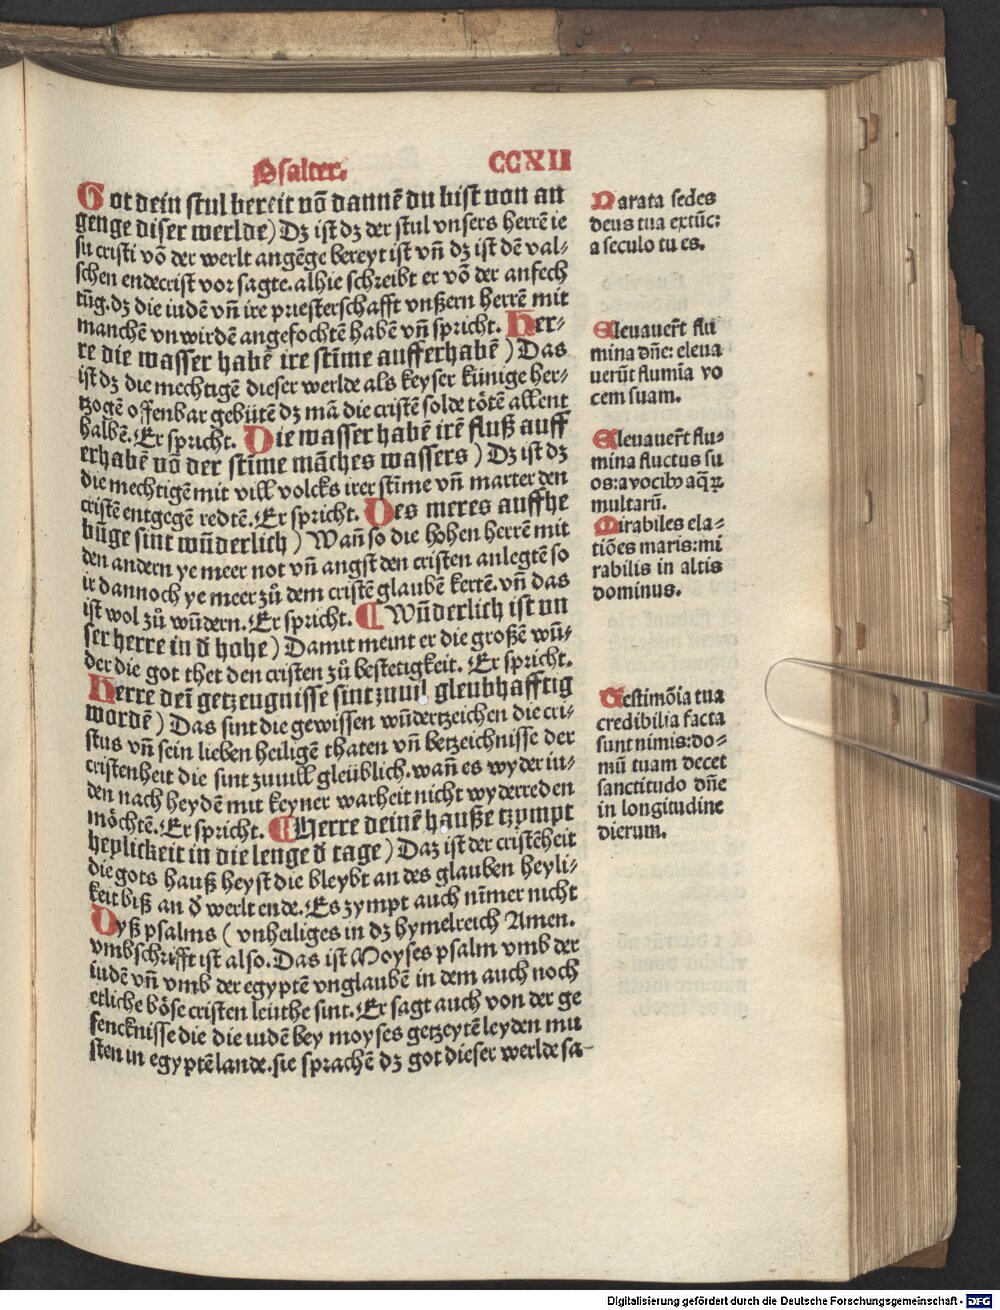 Psalter.
CCXII
Got dein stul bereit vō dannē du bist von an
genge diser werlde) Dz ist dz der stul vnsers herrē ie
su cristi vō der werlt angēge bereyt ist vñ dz ist dē val⸗
schen endecrist vor sagte. alhie schreibt er vō der anfech
tūg. dz die iudē vñ ire priesterschafft vnßern herrē mit
manchē vnwirdē angefochtē habē vñ spricht. Her⸗
re die wasser habē ire stīme aufferhabē) Das
ist dz die mechtigē dieser werlde als keyser künige her⸗
tzogē offenbar gebütē dz mā die cristē solde tötē allent
halbē. Er spricht. Die wasser habē irē fluß auff
erhabē vō der stīme māches wassers) Dz ist dz
die mechtigē mit vill volcks irer stīme vñ marter den
cristē entgegē redtē. Er spricht. Des meres auffhe
būge sint wūderlich) Wañ so die hohen herrē mit
den andern ye meer not vñ angst den cristen anlegtē so
ir dannoch ye meer zů dem cristē glaubē kertē. vñ das
ist wol zů wūdern. Er spricht. ¶ Wūderlich ist vn
ser herre in đ hohe) Damit meint er die großē wū⸗
der die got thet den cristen zů bestetigkeit. Er spricht.
Herre dei getzeugnisse sint zuuil gleubhafftig
wordē) Das sint die gewissen wūdertzeichen die cri⸗
stus vñ sein lieben heiligē thaten vñ betzeichnisse der
cristenheit die sint zuuill gleüblich. wañ es wyder iu⸗
den nach heydē mit keyner warheit nicht wyderreden
möchtē. Er spricht. ¶ Herre deinē hauße tzympt
heylickeit in die lenge đ tage) Daz ist der cristēheit
die gots hauß heyst die bleybt an des glauben heyli⸗
keit biß an đ werlt ende. Es zympt auch nīmer nicht
Dyß psalms ( vnheiliges in dz hymelreich Amen.
vmbschrifft ist also. Das ist Moyses psalm vmb der
iudē vñ vmb der egyptē vnglaubē in dem auch noch
etliche böse cristen leüthe sint. Er sagt auch von der ge
fencknisse die die iudē bey moyses getzeytē leyden mu
sten in egyptē lande. sie sprachē dz got dieser werlde sa⸗
Parata sedes
deus tua extūc:
a seculo tu es.
Eleuauerūt flu
mina dñe: eleua
uerūt flumīa vo
cem suam.
Eleuauerūt flu⸗
mina fluctus su
os: a vocibꝫ aq̄ꝝ
multarū.
Mirabiles ela⸗
tiões maris: mi
rabilis in altis
dominus.
Testimōia tua
credibilia facta
sunt nimis: do⸗
mū tuam decet
sanctitudo dñe
in longitudine
dierum.
Digitalisierung gefördert durch die Deutsche Forschungsgemeinschaft - DFG